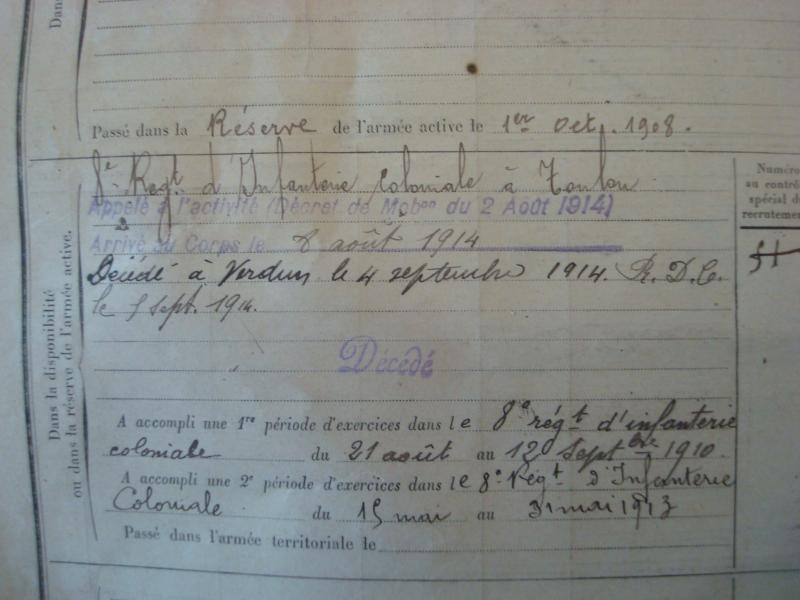 Dans
Passé dans la Réserve de l'armée active le 1er Oct. 1908.
8e Regt d'Infanterie Coloniale à Toulon
Appelé à l'activité (Décret de Mobon du 2 Août 1914)
Arrivé au Corps le 8 août 1914
Décédé à Verdun le 4 septembre 1914. R. D. C.
le 5 sept. 1914.
Décédé
A accompli une 1re période d'exercices dans le 8e régt d'infanterie
coloniale du 21 août au 12 Septbre 1910.
A accompli une 2e période d'exercices dans le 8e Régt d'Infanterie
Coloniale du 15 mai au 31 mai 1913
Passé dans l'armée territoriale le
Dans la disponibilité
ou dans la réserve de l'armée active.
Numéro
au contrôle
spécial du
recrutement